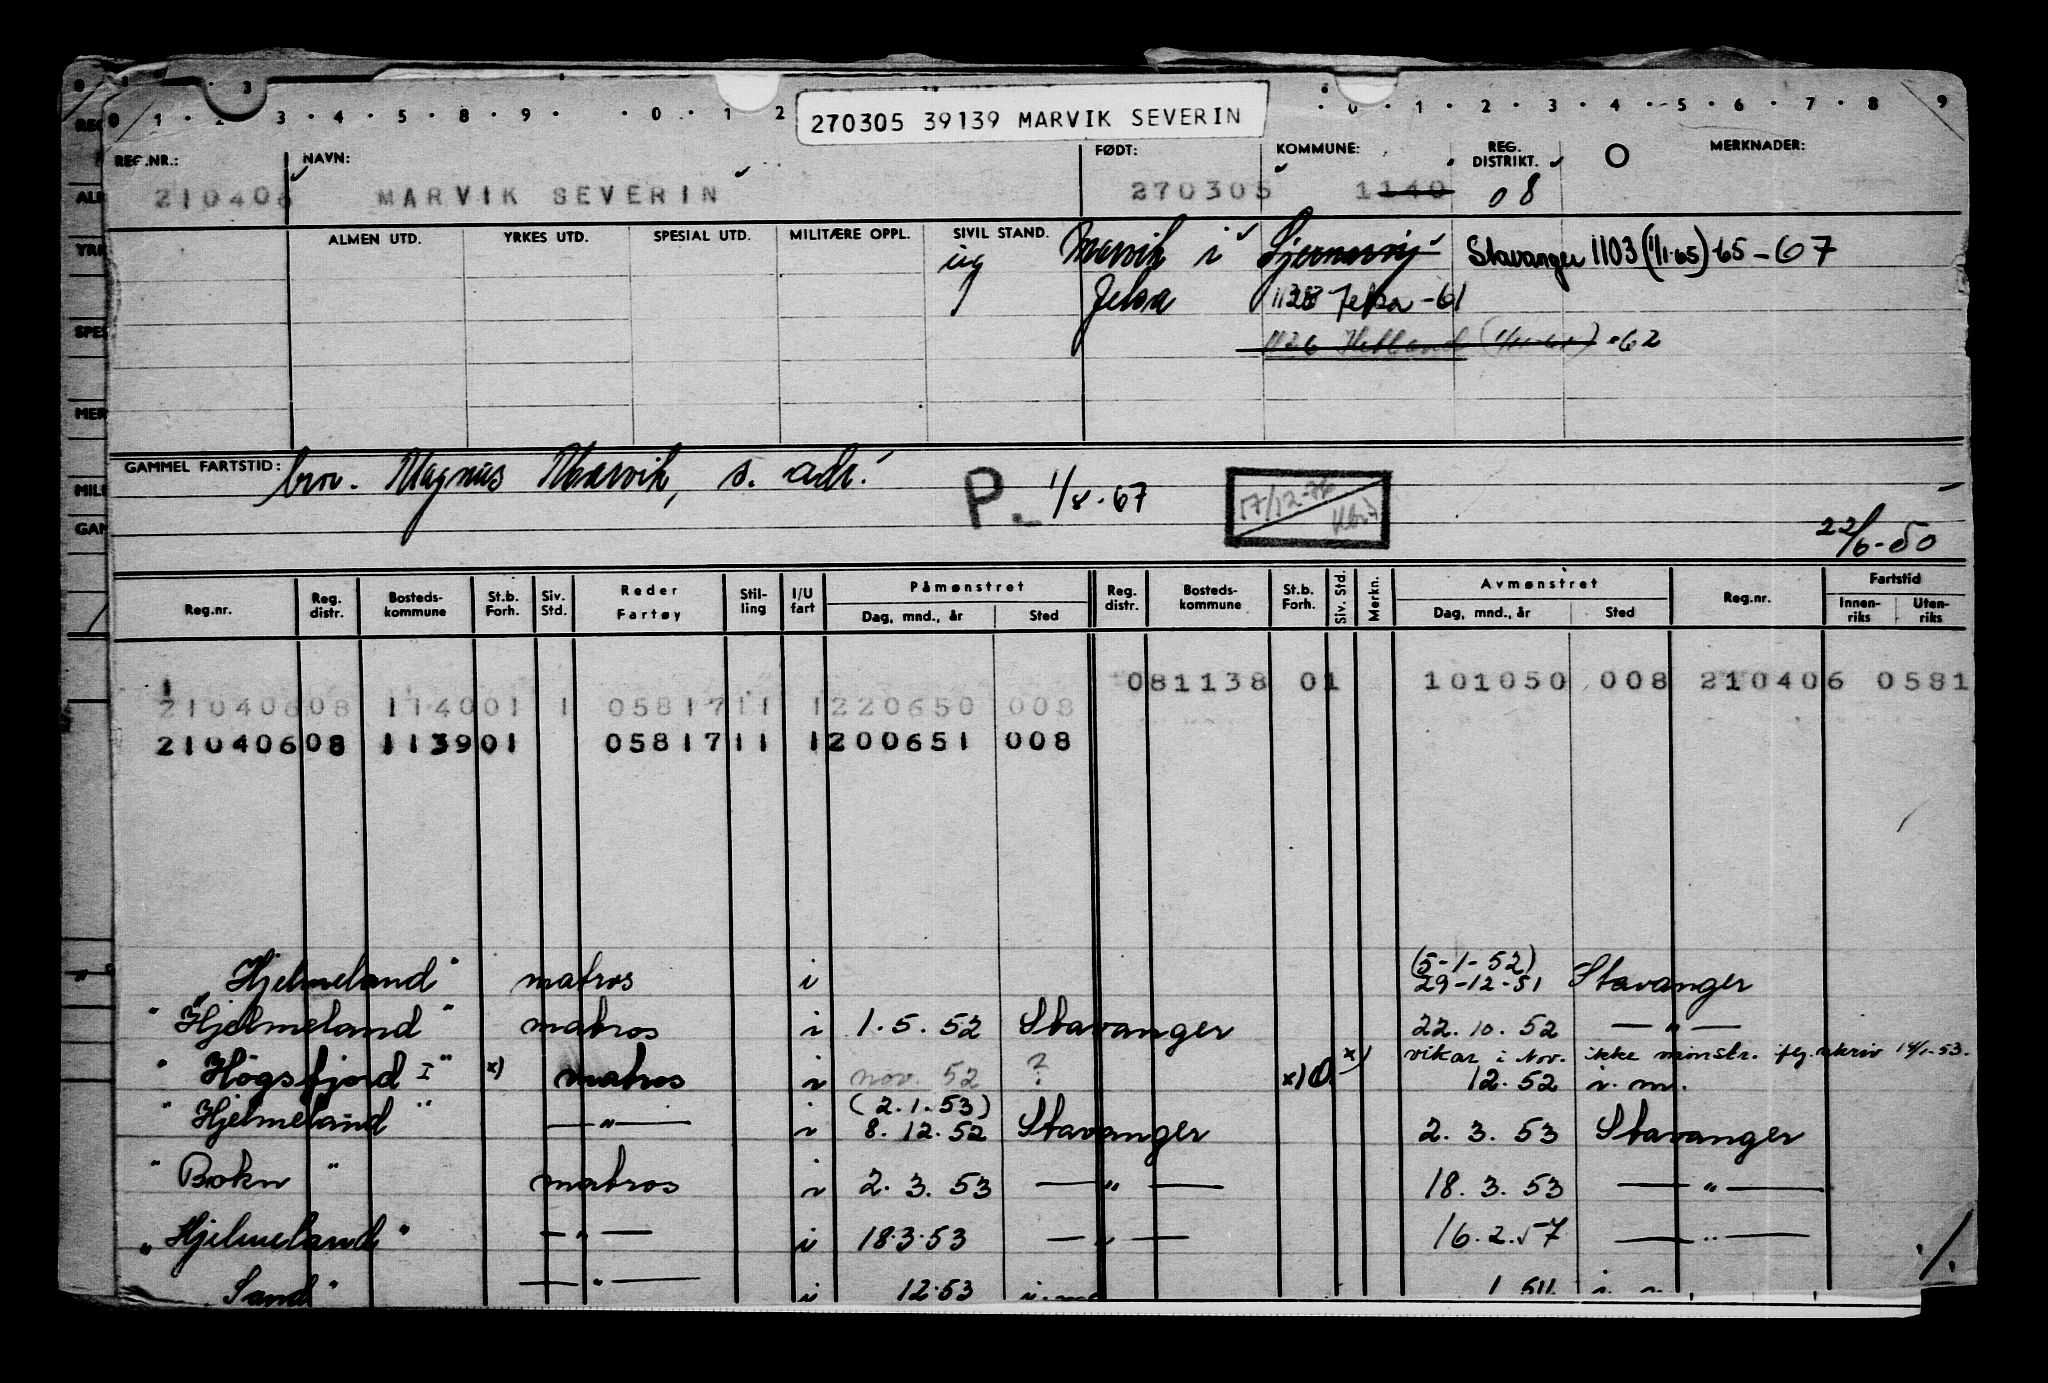 270305 39139 MARVIK SEVERIN
REG.NR.: NAVN: FØDT: KOMMUNE: REG. DISTRIKT. O MERKNADER:
210406 MARVIK SEVERIN 270305 1140 08
ALMEN UTD. YRKES UTD. SPESIAL UTD. MILITÆRE OPPL. SIVIL STAND.
ug Marvik i Sjernarøy Stavanger 1103 (1/1-65) 65-67
Jelsa 1138 Jelsa -61
1126 Hetland (1/11-61) -62
GAMMEL FARTSTID: bror. Magnus Marvik, s. adr.
P. 1/8-67 17/12-76
22/6-50
Reg.nr. Reg. distr. Bosteds-kommune St.b. Forh. Siv. Std. Reder Fartøy Stil-ling I/U fart Påmønstret Dag, mnd., år Sted Reg. distr. Bosteds-kommune St.b. Forh. Siv. Std. Merkn. Avmønstret Dag, mnd., år Sted Reg.nr. Fartstid Innen-riks Uten-riks
081138 01 101050 008 210406 0581
21040608 114001 1 0581711 1220650 008
21040608 113901 0581711 1200651 008
(5-1-52)
"Hjelmeland" matros i 29-12-51 Stavanger
"Hjelmeland" matros i 1.5.52 Stavanger 22.10.52 — " —
x) vikar i Nov. ikke mønstr. flg. skriv 14/1-53.
"Høgsfjord I" x) matros i nov. 52 ? x) 12.52 i. m.
(2.1.53)
"Hjelmeland" — " — i 8.12.52 Stavanger 2.3.53 Stavanger
"Bokn" matros i 2.3.53 — " — 18.3.53 — " —
"Hjelmeland" — " — i 18.3.53 — " — 16.2.57 — " —
./.
Sand" — " — i 12.53